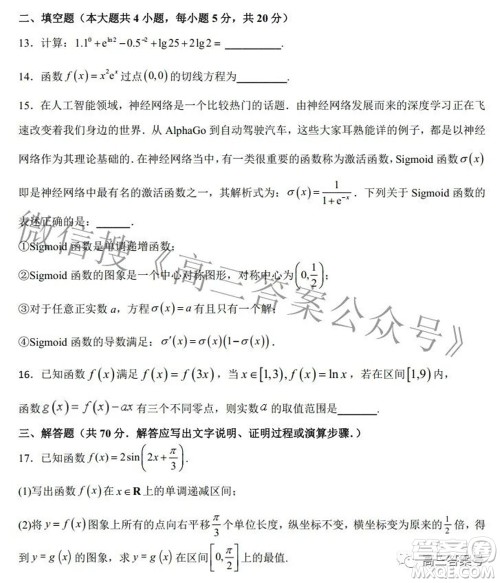 二、填空题（本大题共 4 小题，每小题 5 分，共 20 分）
13．计算：1.1⁰ + e^(ln2) − 0.5⁻² + lg25 + 2lg2 = ________．
14．函数 f(x) = x²eˣ 过点 (0,0) 的切线方程为________．
15．在人工智能领域，神经网络是一个比较热门的话题．由神经网络发展而来的深度学习正在飞
速改变着我们身边的世界．从 AlphaGo 到自动驾驶汽车，这些大家耳熟能详的例子，都是以神经
网络作为其理论基础的．在神经网络当中，有一类很重要的函数称为激活函数，Sigmoid 函数 σ(x)
即是神经网络中最有名的激活函数之一，其解析式为：σ(x) = 1/(1+e⁻ˣ)．下列关于 Sigmoid 函数的
表述正确的是：______．
①Sigmoid 函数是单调递增函数；
②Sigmoid 函数的图象是一个中心对称图形，对称中心为 (0, 1/2)；
③对于任意正实数 a，方程 σ(x) = a 有且只有一个解；
④Sigmoid 函数的导数满足：σ′(x) = σ(x)(1−σ(x))．
16．已知函数 f(x) 满足 f(x) = f(3x)，当 x∈[1,3), f(x) = ln x，若在区间 [1,9) 内，
函数 g(x) = f(x) − ax 有三个不同零点，则实数 a 的取值范围是______
三、解答题（共 70 分．解答应写出文字说明、证明过程或演算步骤．）
17．已知函数 f(x) = 2sin(2x + π/3)．
(1)写出函数 f(x) 在 x∈R 上的单调递减区间；
(2)将 y = f(x) 图象上所有的点向右平移 π/3 个单位长度，纵坐标不变，横坐标变为原来的 1/2 倍，得
到 y = g(x) 的图象，求 y = g(x) 在区间 [0, π/2] 上的最值．
微信搜《高三答案公众号》
高三答案号